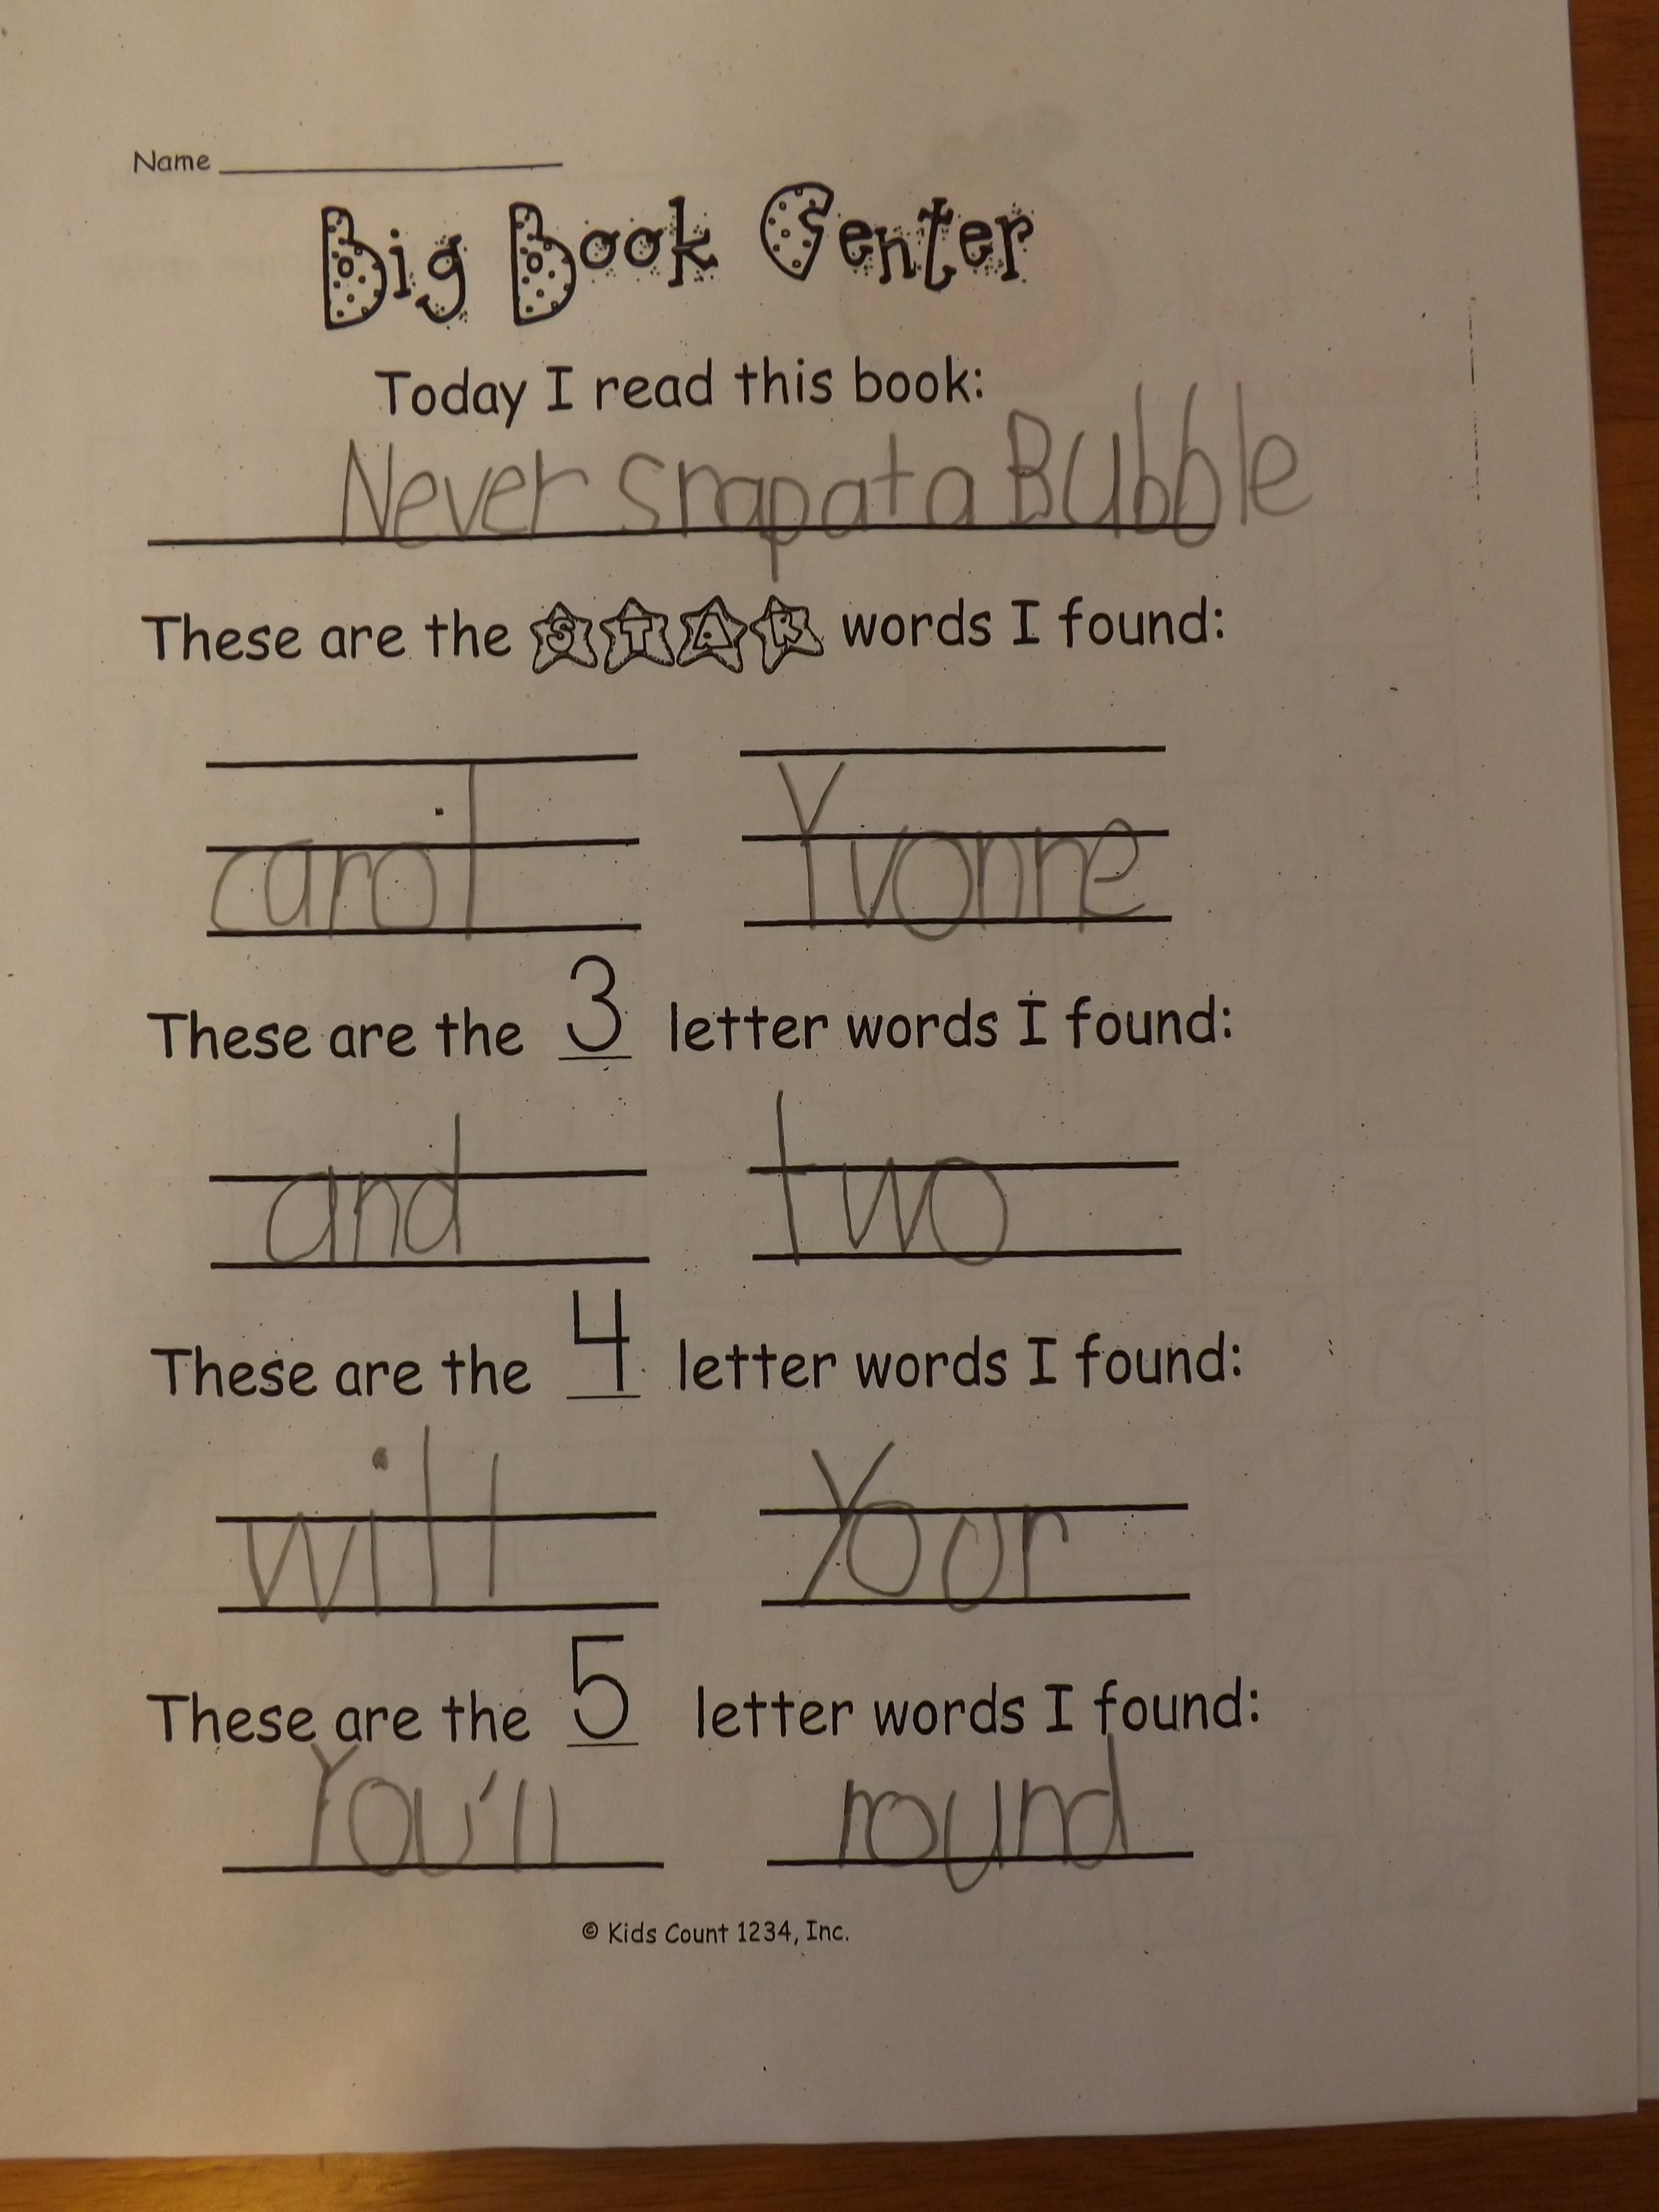 Name
Big Book Center
Today I read this book:
Never Snap at a Bubble
These are the STAR words I found:
carol Yvonne
These are the 3 letter words I found:
and two
These are the 4 letter words I found:
will Your
These are the 5 letter words I found:
You'll round
© Kids Count 1234, Inc.